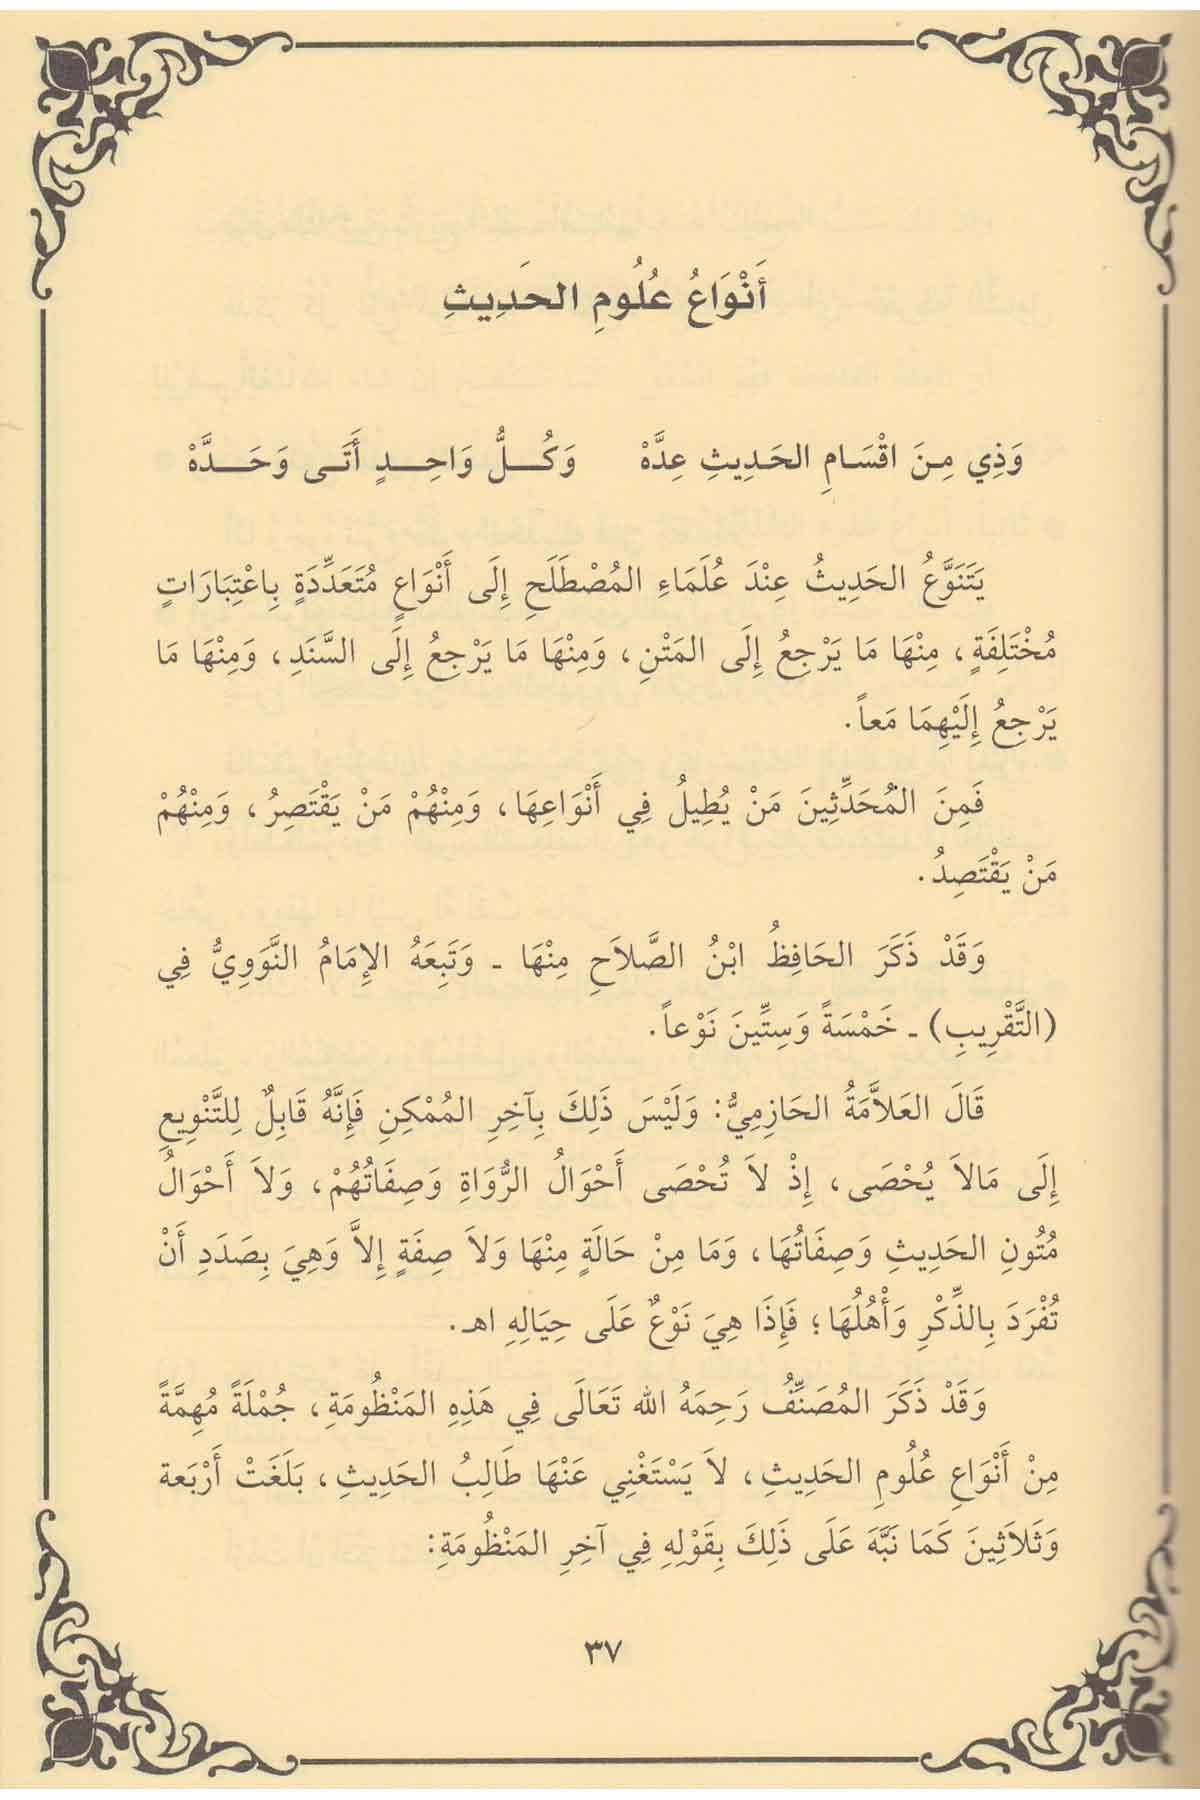 أَنْوَاعُ عُلُومِ الحَدِيثِ
وَذِي مِنَ اقْسَامِ الحَدِيثِ عِدَّهْ وَكُلُّ وَاحِدٍ أَتَى وَحَدَّهْ
يَتَنَوَّعُ الحَدِيثُ عِنْدَ عُلَمَاءِ المُصْطَلَحِ إِلَى أَنْوَاعٍ مُتَعَدِّدَةٍ بِاعْتِبَارَاتٍ
مُخْتَلِفَةٍ، مِنْهَا مَا يَرْجِعُ إِلَى المَتْنِ، وَمِنْهَا مَا يَرْجِعُ إِلَى السَّنَدِ، وَمِنْهَا مَا
يَرْجِعُ إِلَيْهِمَا مَعاً.
فَمِنَ المُحَدِّثِينَ مَنْ يُطِيلُ فِي أَنْوَاعِهَا، وَمِنْهُمْ مَنْ يَقْتَصِرُ، وَمِنْهُمْ
مَنْ يَقْتَصِدُ.
وَقَدْ ذَكَرَ الحَافِظُ ابْنُ الصَّلاَحِ مِنْهَا ـ وَتَبِعَهُ الإِمَامُ النَّوَوِيُّ فِي
(التَّقْرِيبِ) ـ خَمْسَةً وَسِتِّينَ نَوْعاً.
قَالَ العَلاَّمَةُ الحَازِمِيُّ: وَلَيْسَ ذَلِكَ بِآخِرِ المُمْكِنِ فَإِنَّهُ قَابِلٌ لِلتَّنْوِيعِ
إِلَى مَالاَ يُحْصَى، إِذْ لاَ تُحْصَى أَحْوَالُ الرُّوَاةِ وَصِفَاتُهُمْ، وَلاَ أَحْوَالُ
مُتُونِ الحَدِيثِ وَصِفَاتُهَا، وَمَا مِنْ حَالَةٍ مِنْهَا وَلاَ صِفَةٍ إِلاَّ وَهِيَ بِصَدَدِ أَنْ
تُفْرَدَ بِالذِّكْرِ وَأَهْلُهَا؛ فَإِذَا هِيَ نَوْعٌ عَلَى حِيَالِهِ اهـ.
وَقَدْ ذَكَرَ المُصَنِّفُ رَحِمَهُ الله تَعَالَى فِي هَذِهِ المَنْظُومَةِ، جُمْلَةً مُهِمَّةً
مِنْ أَنْوَاعِ عُلُومِ الحَدِيثِ، لاَ يَسْتَغْنِي عَنْهَا طَالِبُ الحَدِيثِ، بَلَغَتْ أَرْبَعة
وَثَلاَثِينَ كَمَا نَبَّهَ عَلَى ذَلِكَ بِقَوْلِهِ فِي آخِرِ المَنْظُومَةِ:
٣٧